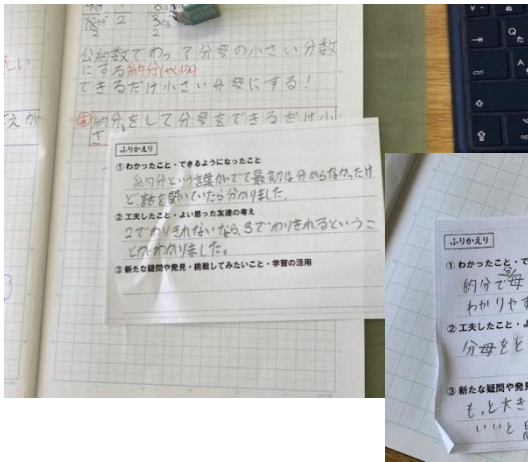 公約数でわって分母の小さい分数
にする約分(やくぶん)
できるだけ小さい分母にする!
約分をして分母をできるだけ小
さ
ふりかえり
① わかったこと・できるようになったこと
約分という言葉がでて最初は分からなかったけ
ど話を聞いていたら分かりました。
② 工夫したこと・よい思った友達の考え
2でわりきれないなら、3でわりきれるというこ
とがわかりました。
③ 新たな疑問や発見・挑戦してみたいこと・学習の活用
ふりかえり
① わかったこと・で
約分で分母
わかりやす
② 工夫したこと・よ
分母をと
③ 新たな疑問や発見
もっと大き
いいと